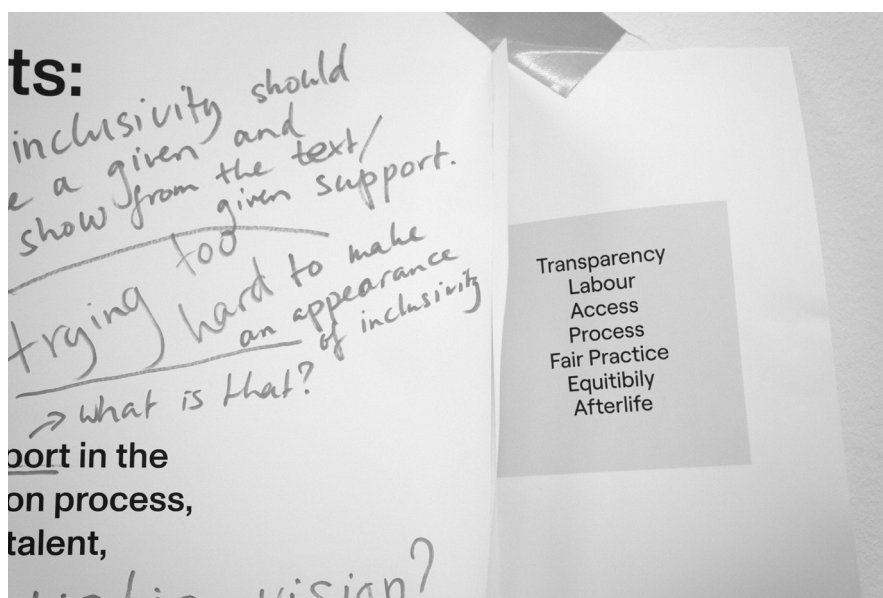 ts:
inclusivity should
e a given and
show from the text/
given support.
trying too
hard to make
an appearance
of inclusivity
what is that?
port in the
on process,
talent,
vision?
Transparency
Labour
Access
Process
Fair Practice
Equitibily
Afterlife